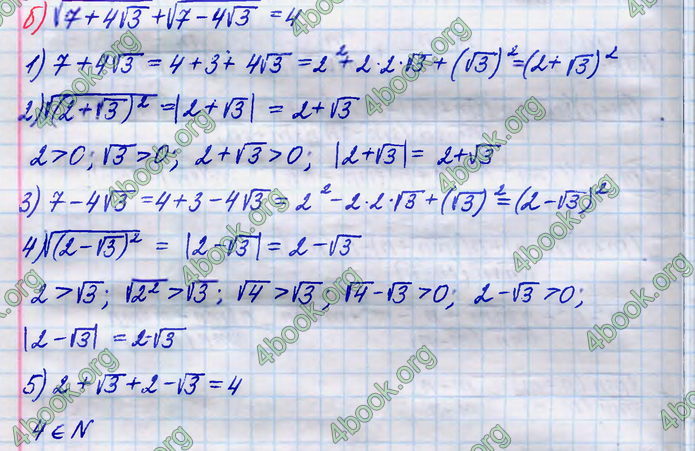 б) √(7+4√3) + √(7-4√3) = 4
1) 7+4√3 = 4+3+4√3 = 2²+2·2·√3+(√3)²=(2+√3)²
2) √(2+√3)² =|2+√3| = 2+√3
2>0; √3>0; 2+√3>0; |2+√3|= 2+√3
3) 7-4√3 =4+3-4√3 = 2²-2·2·√3+(√3)²=(2-√3)²
4) √(2-√3)² = |2-√3|= 2-√3
2>√3; √2²>√3; √4>√3; √4-√3>0; 2-√3>0;
|2-√3| = 2-√3
5) 2+√3+2-√3=4
4∈N
4book.org